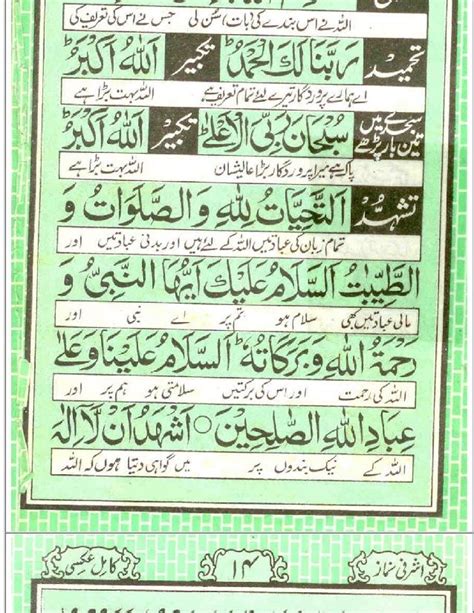 اللہ نے اس بندے کی (بات) سُن لی جس نے اس کی تعریف کی
تحمید رَبَّنَا لَكَ الْحَمْدُ تکبیر اَللّٰهُ اَكْبَرُ
اے ہمارے پروردگار تیرے لئے تمام تعریف ہے اللہ بہت بڑا ہے
سجدے میں تین بار پڑھے سُبْحَانَ رَبِّيَ الْاَعْلٰى تکبیر اَللّٰهُ اَكْبَرُ
پاک ہے میرا پروردگار بڑا عالیشان اللہ بہت بڑا ہے
تشہد اَلتَّحِيَّاتُ لِلّٰهِ وَالصَّلَوَاتُ وَ
تمام زبان کی عبادتیں اللہ کے لئے ہیں اور بدنی عبادتیں اور
الطَّيِّبٰتُ اَلسَّلَامُ عَلَيْكَ اَيُّهَا النَّبِيُّ وَ
مالی عبادتیں بھی سلام ہو تم پر اے نبی اور
رَحْمَةُ اللّٰهِ وَبَرَكَاتُهٗ اَلسَّلَامُ عَلَيْنَا وَعَلٰى
اللہ کی رحمت اور اس کی برکتیں سلامتی ہو ہم پر اور
عِبَادِ اللّٰهِ الصّٰلِحِيْنَ ○ اَشْهَدُ اَنْ لَّا اِلٰهَ
اللہ کے نیک بندوں پر میں گواہی دیتا ہوں کہ اللہ
اشرفی نماز ۱۴ کامل عکسی